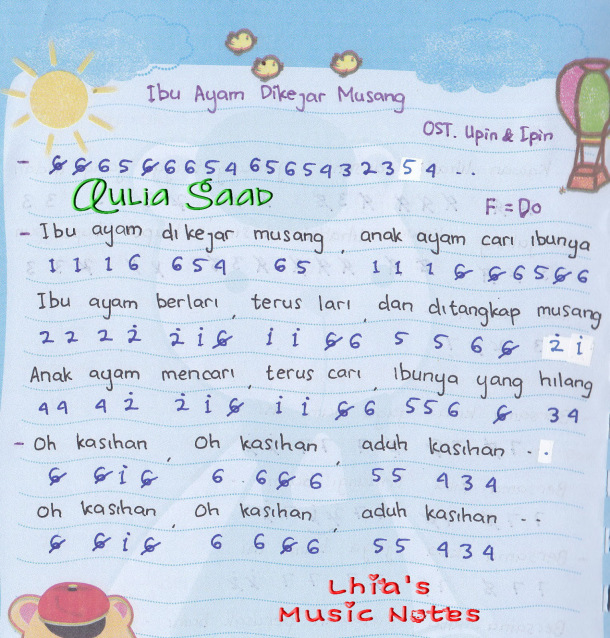 Ibu Ayam Dikejar Musang
OST. Upin & Ipin
- 6̸ 6̸ 6 5 6̸ 6 6 5 4 6 5 6 5 4 3 2 3 5 4 . .
Aulia Saad
F = Do
- Ibu ayam dikejar musang, anak ayam cari ibunya
1 1 1 6 6 5 4 6 5 1 1 1 6̸ 6̸ 6 5 6̸ 6
Ibu ayam berlari, terus lari, dan ditangkap musang
2 2 2 2̇ 2̇ 1̇ 6̸ 1̇ 1̇ 6̸ 6 5 5 6 6̸ 2̇ 1̇
Anak ayam mencari, terus cari, ibunya yang hilang
4 4 4 2̇ 2̇ 1̇ 6̸ 1̇ 1̇ 6̸ 6 5 5 6 6̸ 3 4
- Oh kasihan, Oh kasihan, aduh kasihan . .
6̸ 6̸ 1̇ 6̸ 6 6 6̸ 6 5 5 4 3 4
Oh kasihan, Oh kasihan, aduh kasihan . .
6̸ 6̸ 1̇ 6̸ 6 6 6̸ 6 5 5 4 3 4
Lhia's
Music Notes